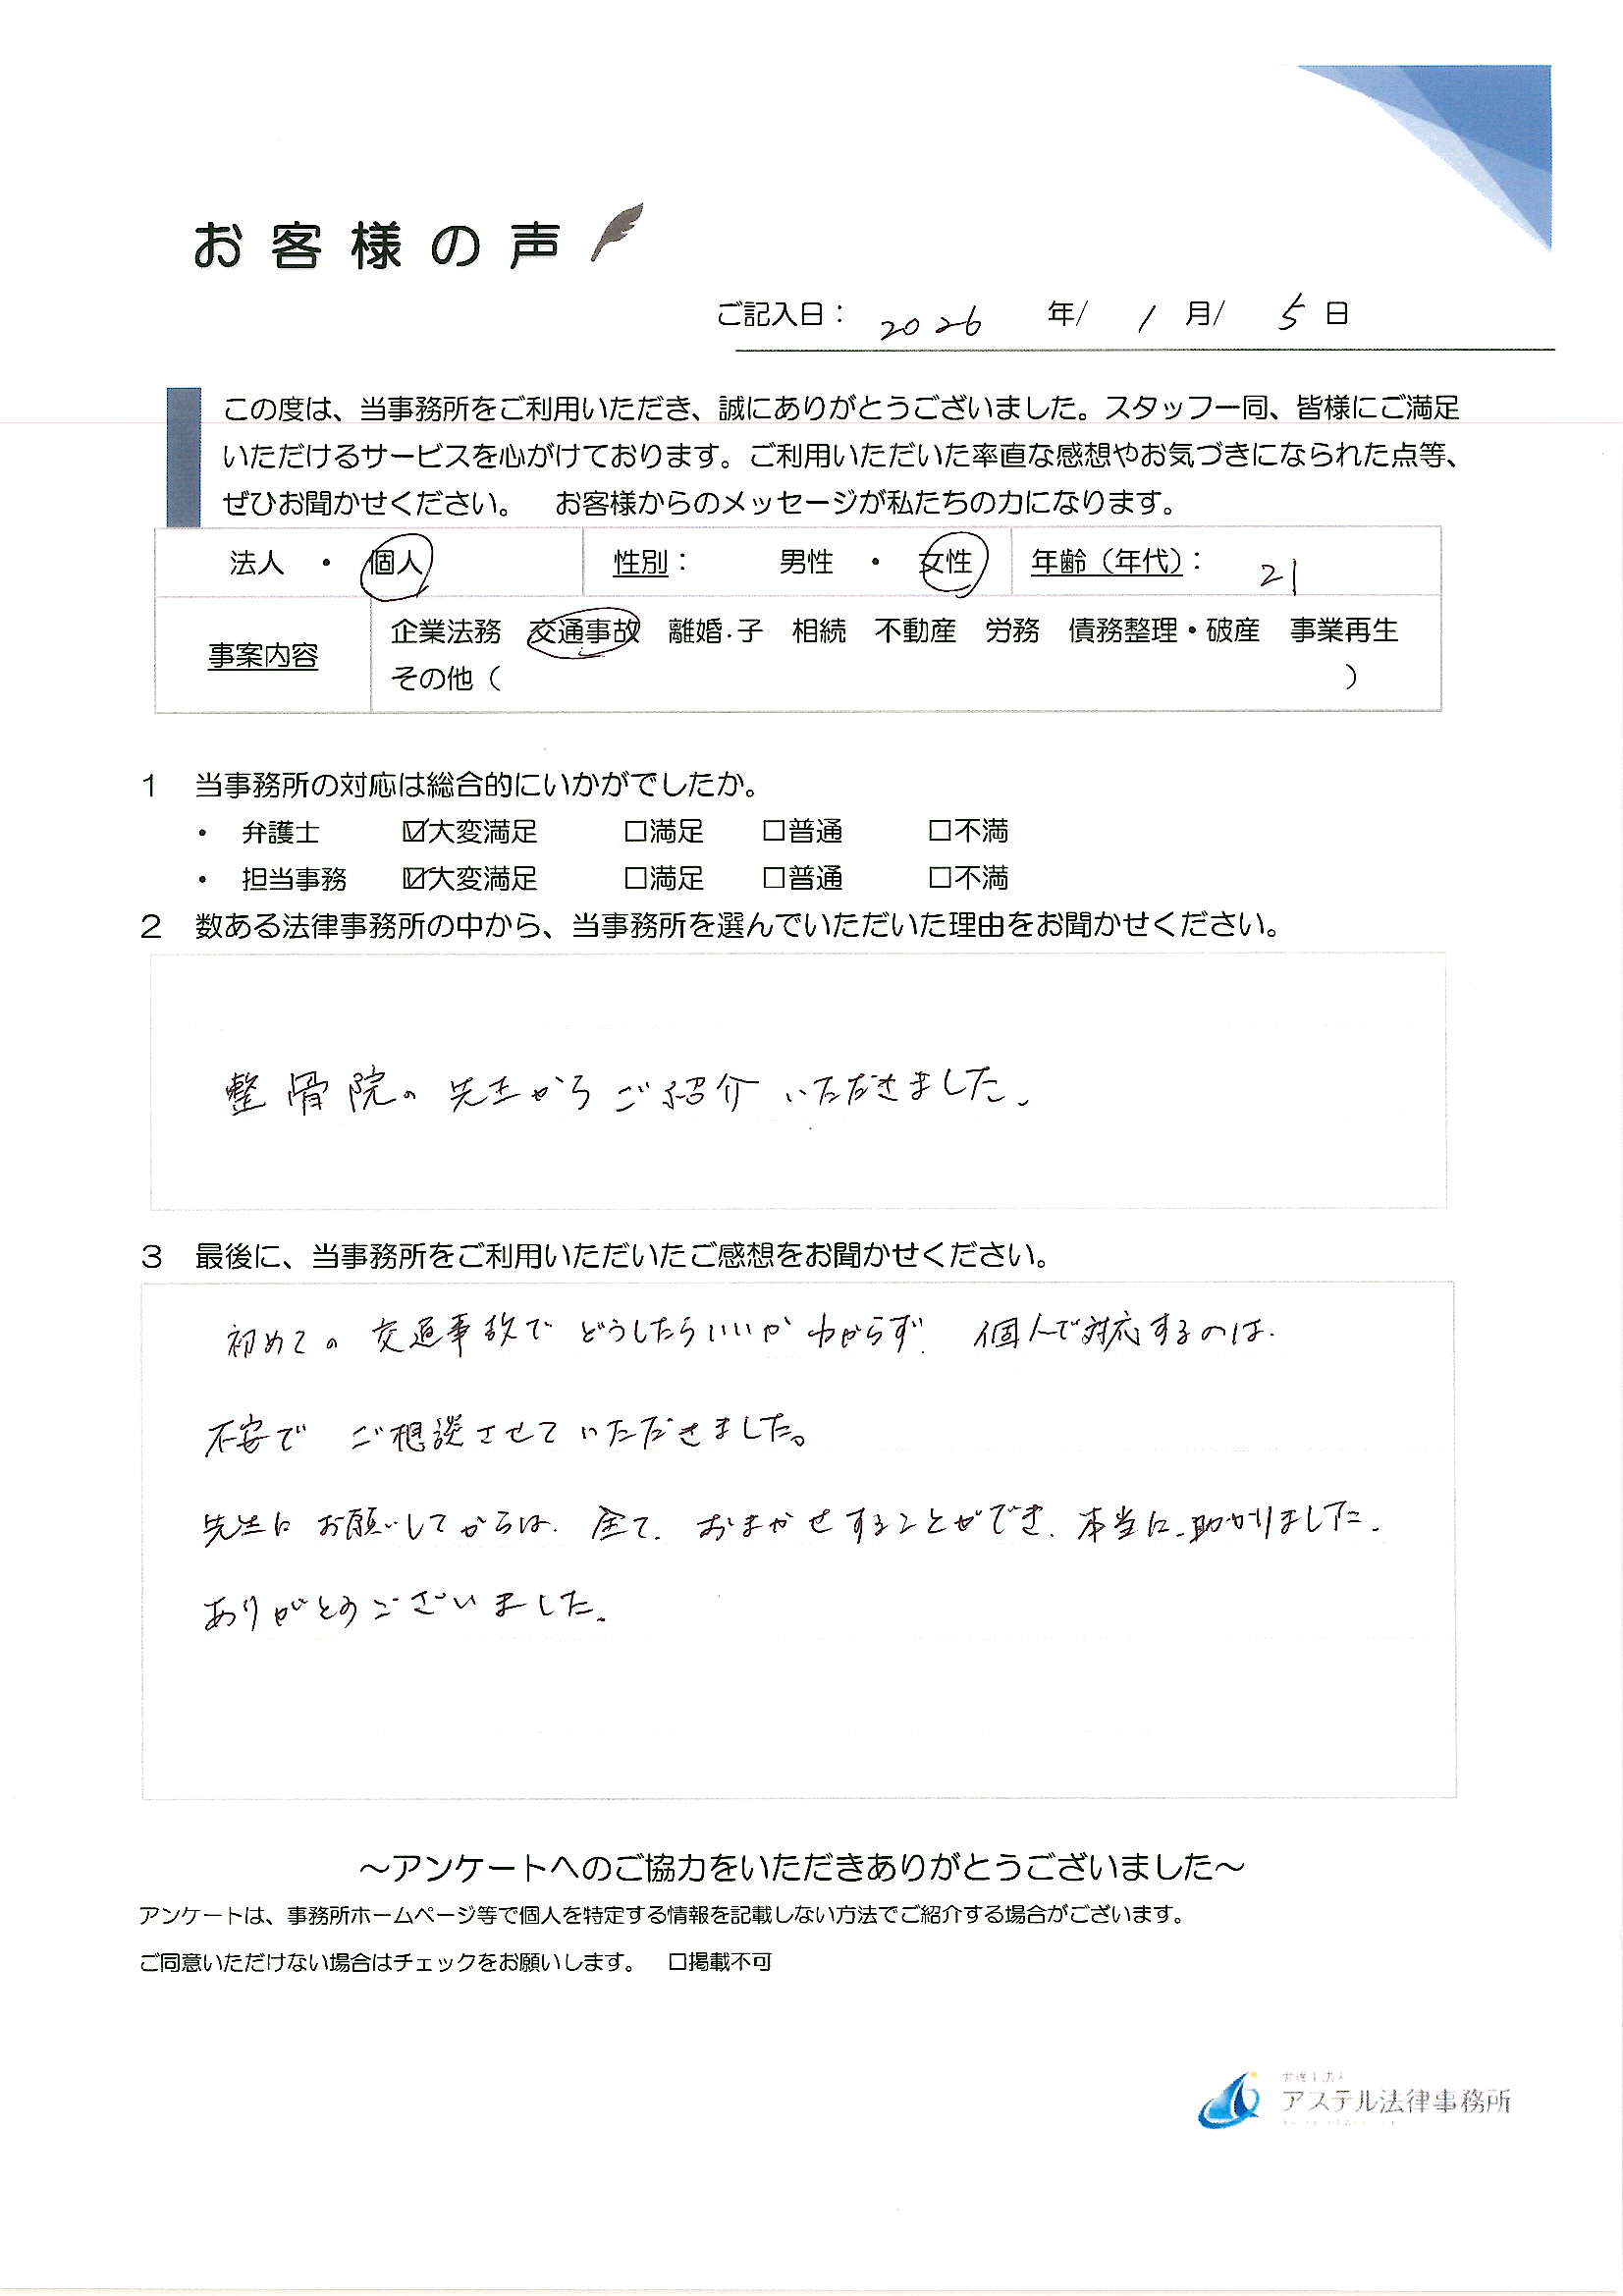 お客様の声
ご記入日： 2026 年/ 1 月/ 5 日
この度は、当事務所をご利用いただき、誠にありがとうございました。スタッフ一同、皆様にご満足
いただけるサービスを心がけております。ご利用いただいた率直な感想やお気づきになられた点等、
ぜひお聞かせください。 お客様からのメッセージが私たちの力になります。
法人 ・ 個人 性別： 男性 ・ 女性 年齢（年代）： 21
事案内容 企業法務 交通事故 離婚.子 相続 不動産 労務 債務整理・破産 事業再生
その他（ ）
1 当事務所の対応は総合的にいかがでしたか。
・ 弁護士 ☑大変満足 □満足 □普通 □不満
・ 担当事務 ☑大変満足 □満足 □普通 □不満
2 数ある法律事務所の中から、当事務所を選んでいただいた理由をお聞かせください。
整骨院の先生からご紹介いただきました、
3 最後に、当事務所をご利用いただいたご感想をお聞かせください。
初めての交通事故でどうしたらいいかわからず、個人で対応するのは、
不安で ご相談させていただきました。
先生にお願いしてからは、全て、おまかせすることができ、本当に助かりました、
ありがとうございました、
～アンケートへのご協力をいただきありがとうございました～
アンケートは、事務所ホームページ等で個人を特定する情報を記載しない方法でご紹介する場合がございます。
ご同意いただけない場合はチェックをお願いします。 □掲載不可
弁護士法人
アステル法律事務所